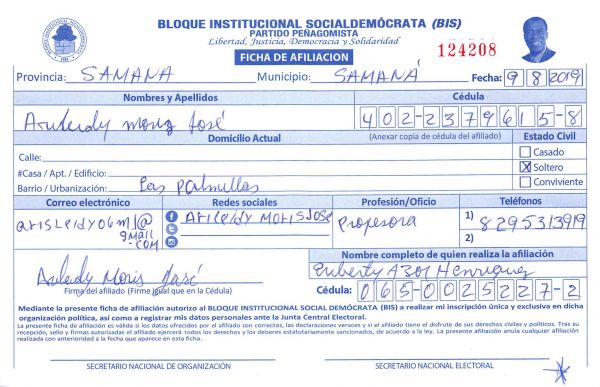 BLOQUE INSTITUCIONAL SOCIALDEMÓCRATA (BIS)
PARTIDO PEÑAGOMISTA
Libertad, Justicia, Democracia y Solidaridad
FICHA DE AFILIACION
124208
Provincia: SAMANA Municipio: SAMANÁ Fecha: 9 8 2019
Nombres y Apellidos Cédula
José 402-2379615-8
Domicilio Actual (Anexar copia de cédula del afiliado) Estado Civil
Calle: Casado
#Casa / Apt. / Edificio: X Soltero
Barrio / Urbanización: Las Palmillas Conviviente
Correo electrónico Redes sociales Profesión/Oficio Teléfonos
arisleidy06m1@ Arileidy Moris Jose Profesora 1) 8295313919
gmail
-com 2)
Moris José
Firma del afiliado (Firme igual que en la Cédula)
Nombre completo de quien realiza la afiliación
Henriquez
Cédula: 065-0025227-2
Mediante la presente ficha de afiliación autorizo al BLOQUE INSTITUCIONAL SOCIAL DEMÓCRATA (BIS) a realizar mi inscripción única y exclusiva en dicha
organización política, así como a registrar mis datos personales ante la Junta Central Electoral.
La presente ficha de afiliación es válida si los datos ofrecidos por el afiliado son correctos, las declaraciones veraces y si el afiliado tiene el disfrute de sus derechos civiles y políticos. Tras su
recepción, sello y firmas autorizadas el afiliado ejercerá todos los derechos y los deberes estatutariamente sancionados, de acuerdo a la ley. La presente afiliación anula cualquier afiliación
realizada con anterioridad a la fecha que aparece en esta ficha.
SECRETARIO NACIONAL DE ORGANIZACIÓN SECRETARIO NACIONAL ELECTORAL